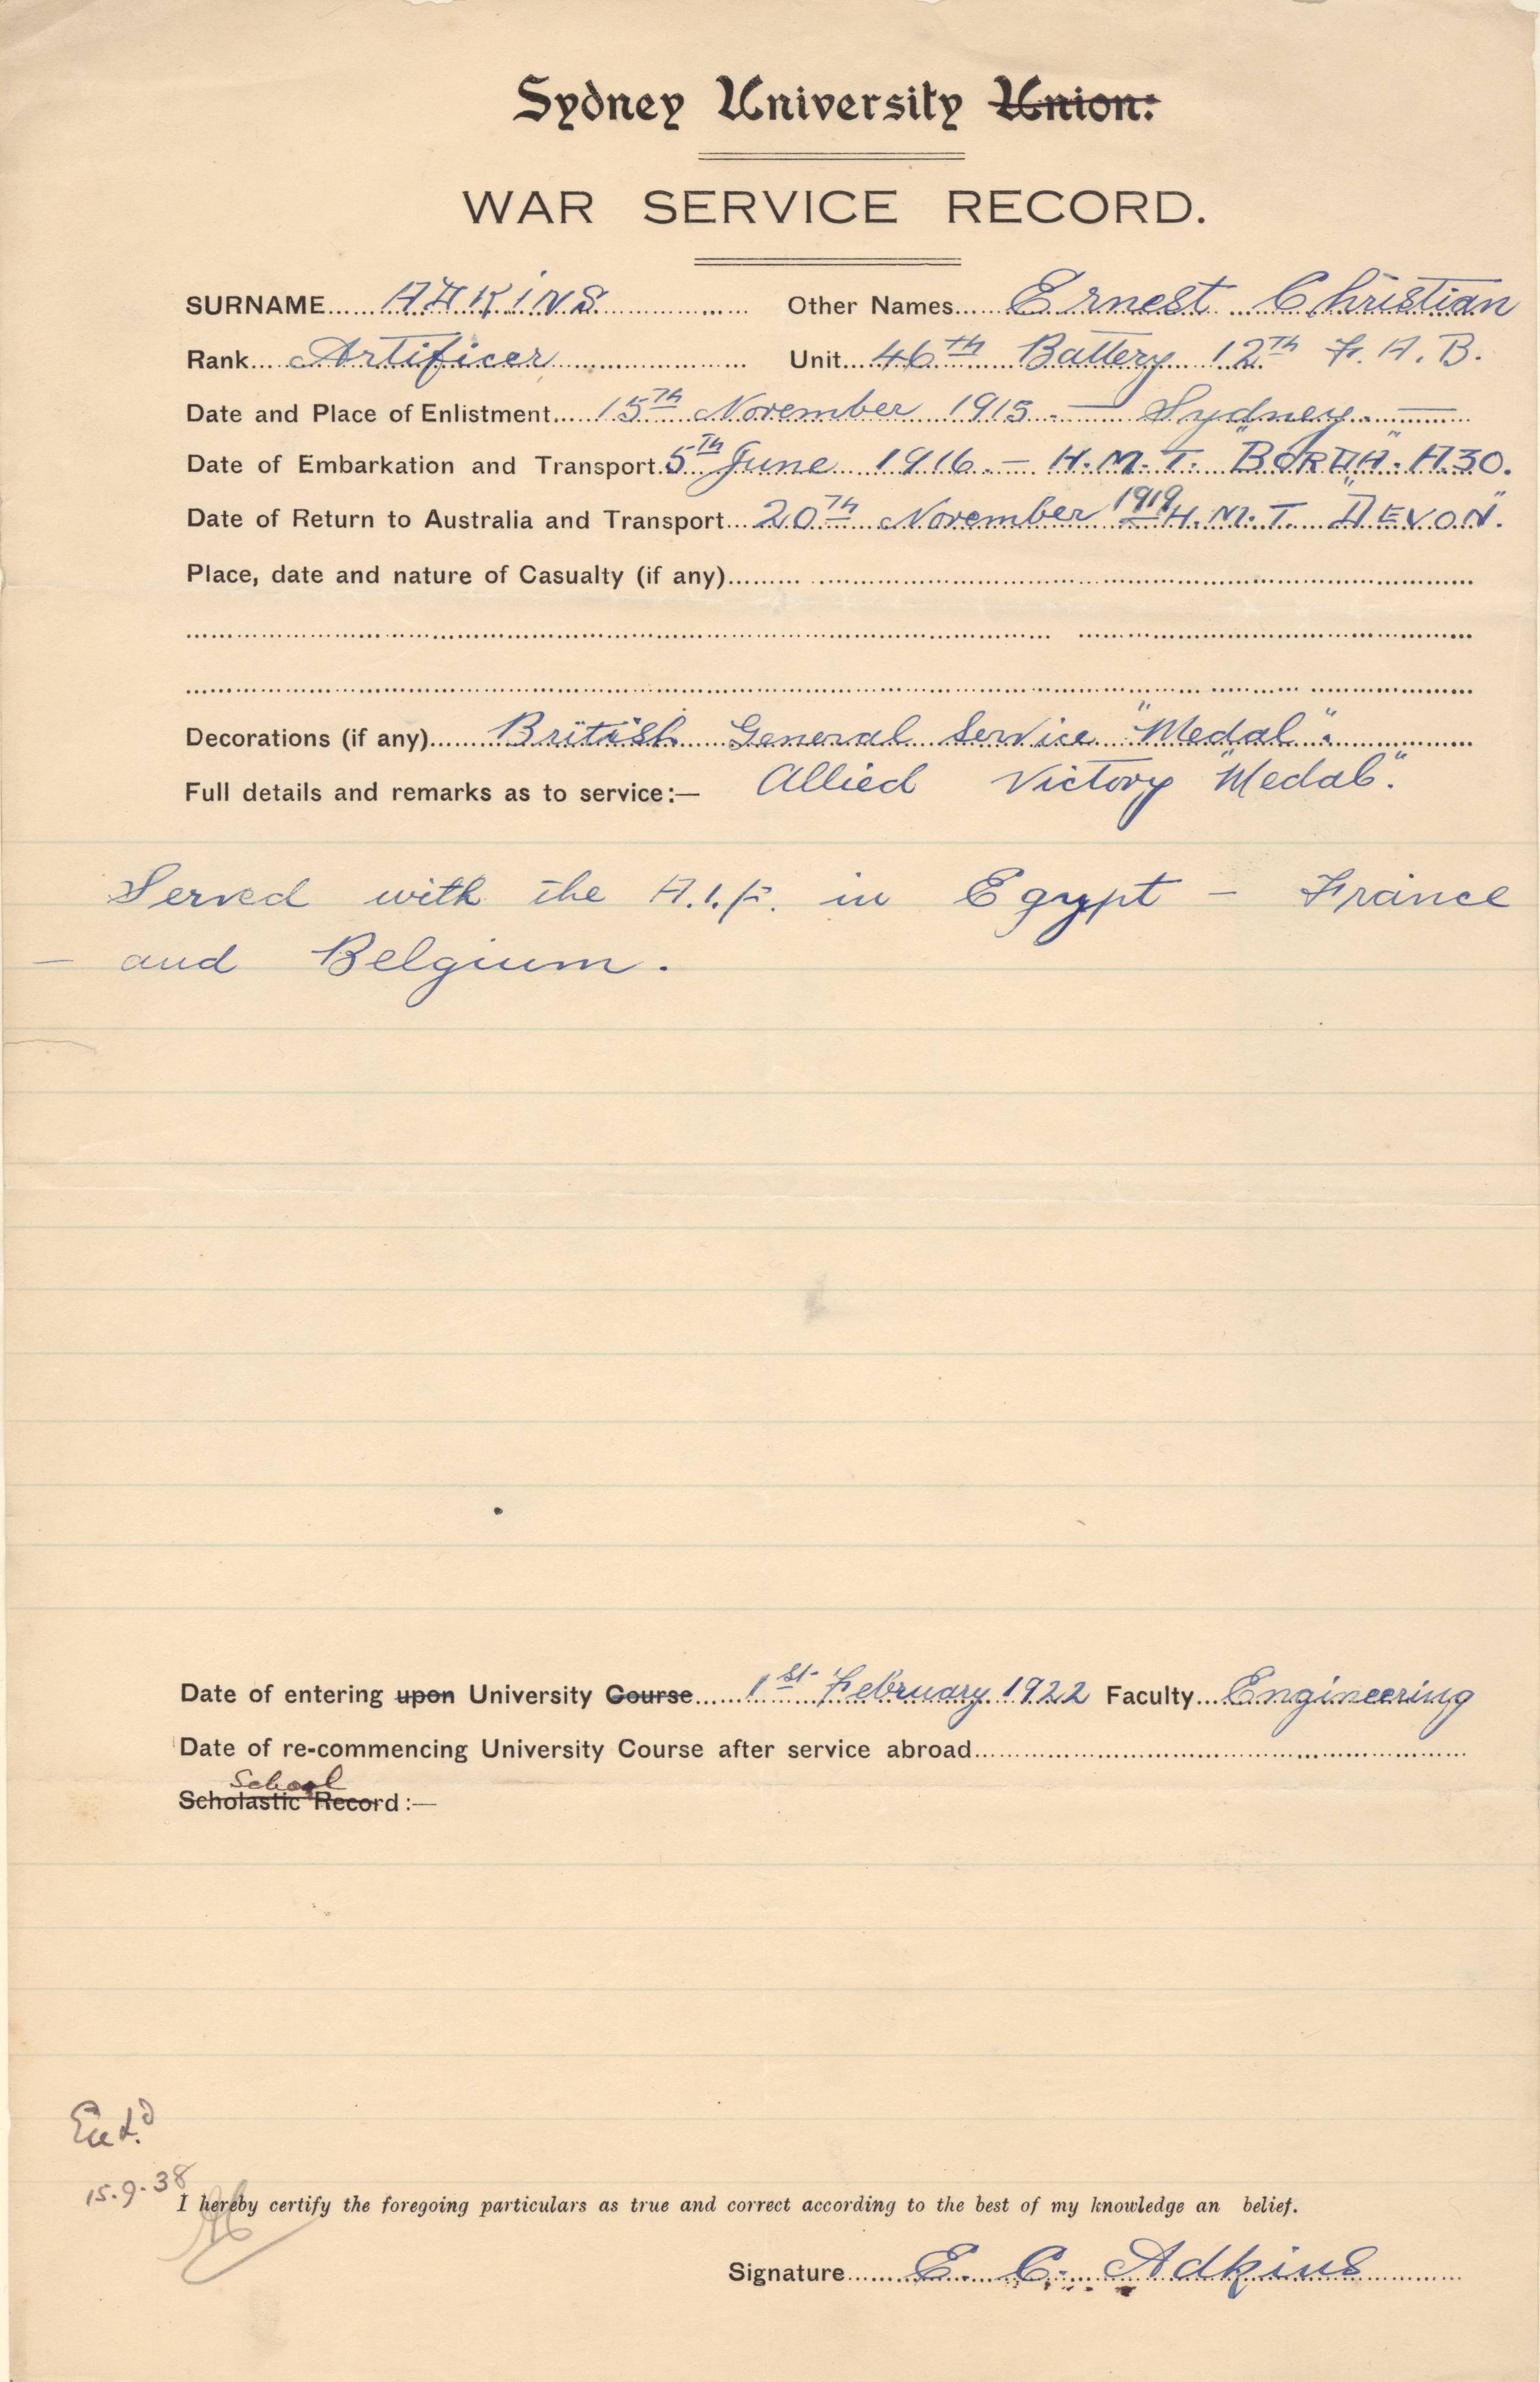 Sydney University Union:
WAR SERVICE RECORD.
SURNAME...... ADKINS .................. Other Names...... Ernest Christian
Rank.... Artificer ........................ Unit.... 46th Battery 12th F. A. B.
Date and Place of Enlistment..... 15th November 1915. — Sydney. —
Date of Embarkation and Transport. 5th June 1916. — H.M.T. "BORDA". A30.
Date of Return to Australia and Transport... 20th November 1919 H.M.T. "DEVON".
Place, date and nature of Casualty (if any).........
Decorations (if any)....... British General Service "Medal".
Full details and remarks as to service:— Allied Victory "Medal".
Served with the A.I.F. in Egypt — France
— and Belgium.
Date of entering upon University Course...... 1st February 1922 Faculty... Engineering
Date of re-commencing University Course after service abroad.........
School
Scholastic Record :—
Entd
15.9.38
I hereby certify the foregoing particulars as true and correct according to the best of my knowledge an belief.
Signature....... E. C. Adkins